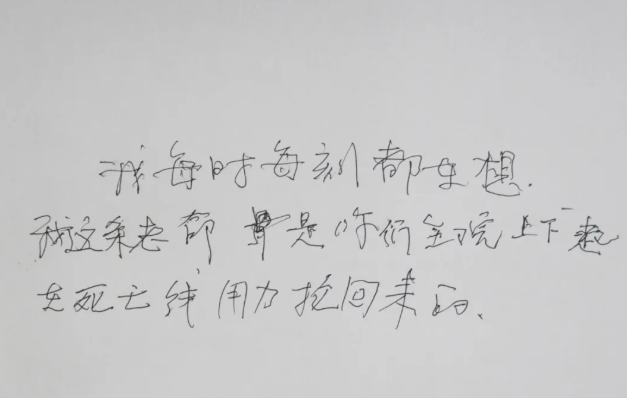 我每时每刻都在想.
我这条老都是你们全院上下
在死亡线用力抢回来的、